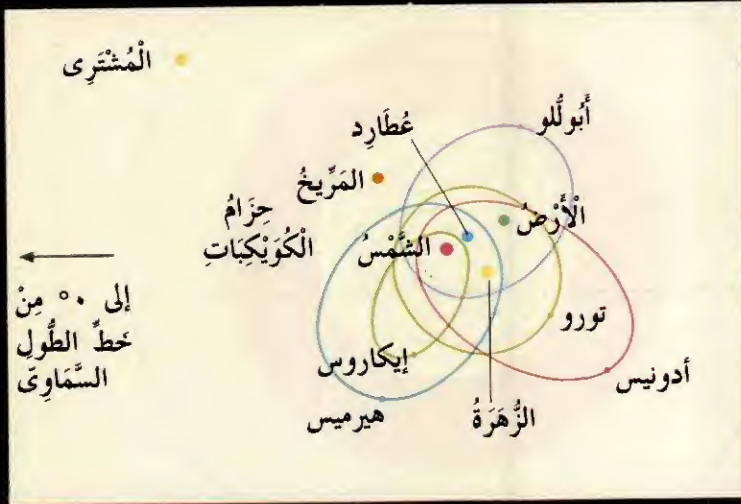 الْمُشْتَرِى
أَبُولُّلو
عُطَارِد
المَرِّيخُ
حِزَامُ
الْكُوَيْكِبَاتِ
الْأَرْضُ
الشَّمْسُ
إلى ٠° مِنْ
خَطِّ الطُّولِ
السَّمَاوِىّ
تورو
إيكاروس
أدونيس
هيرميس
الزُّهَرَةُ